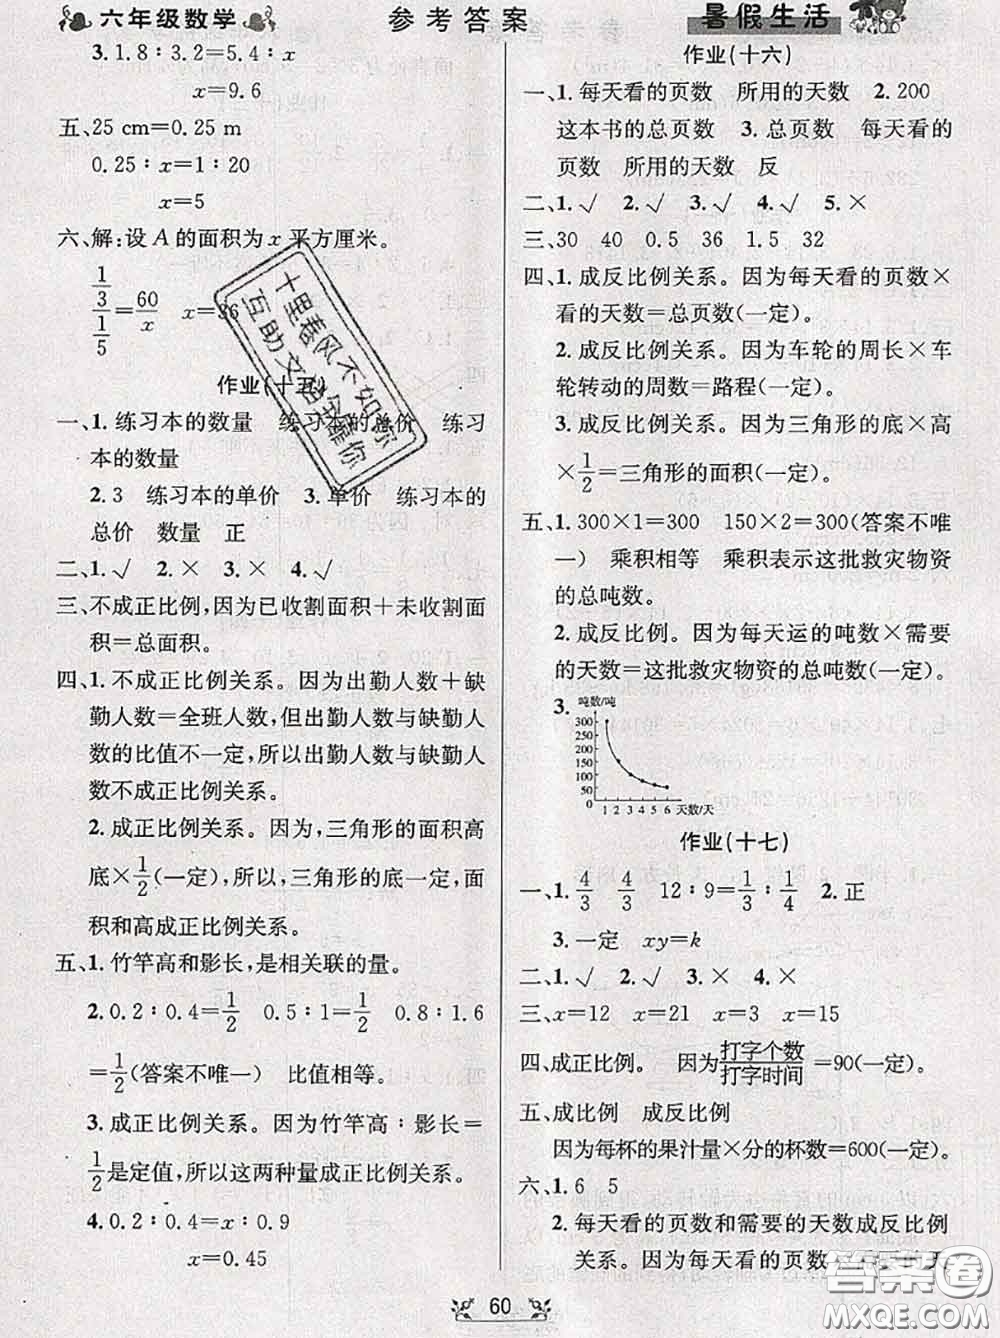 六年级数学
参考答案
暑假生活
3. 1.8∶3.2=5.4∶x
x=9.6
五、25 cm=0.25 m
0.25∶x=1∶20
x=5
六、解:设 A 的面积为 x 平方厘米。
(1/3)/(1/5)=60/x x=36
作业(十五)
一、1.练习本的数量 练习本的总价 练习
本的数量
2.3 练习本的单价 3.单价 练习本的
总价 数量 正
二、1.√ 2.× 3.× 4.√
三、不成正比例,因为已收割面积＋未收割面
积＝总面积。
四、1.不成正比例关系。因为出勤人数＋缺
勤人数＝全班人数,但出勤人数与缺勤人
数的比值不一定,所以出勤人数与缺勤人
数不成正比例关系。
2.成正比例关系。因为,三角形的面积高
底×1/2(一定),所以,三角形的底一定,
面积和高成正比例关系。
五、1.竹竿高和影长,是相关联的量。
2.0.2∶0.4=1/2 0.5∶1=1/2 0.8∶1.6
=1/2(答案不唯一) 比值相等。
3.成正比例关系。因为竹竿高∶影长=
1/2是定值,所以这两种量成正比例关系。
4.0.2∶0.4=x∶0.9
x=0.45
作业(十六)
一、1.每天看的页数 所用的天数 2.200
这本书的总页数 3.总页数 每天看的
页数 所用的天数 反
二、1.√ 2.√ 3.√ 4.√ 5.×
三、30 40 0.5 36 1.5 32
四、1.成反比例关系。因为每天看的页数×
看的天数＝总页数(一定)。
2.成反比例关系。因为车轮的周长×车
轮转动的周数＝路程(一定)。
3.成反比例关系。因为三角形的底×高
×1/2=三角形的面积(一定)。
五、1.300×1=300 150×2=300(答案不唯
一) 乘积相等 乘积表示这批救灾物资
的总吨数。
2.成反比例。因为每天运的吨数×需要
的天数＝这批救灾物资的总吨数(一定)。
3.
吨数/吨
300
250
200
150
100
50
0
1 2 3 4 5 6 天数/天
作业(十七)
一、1.4/3 4/3 12∶9=1/3∶1/4 2.正
3.一定 xy=k
二、1.√ 2.√ 3.√ 4.×
三、x=12 x=21 x=3 x=15
四、成正比例。 因为打字个数/打字时间=90(一定)。
五、成比例 成反比例
因为每杯的果汁量×分的杯数=600(一定)。
六、1.6 5
2.每天看的页数和需要的天数成反比例
关系。因为每天看的页数
天
60
十里春风不如你
互助文
靠你
答案圈
MXQE.COM